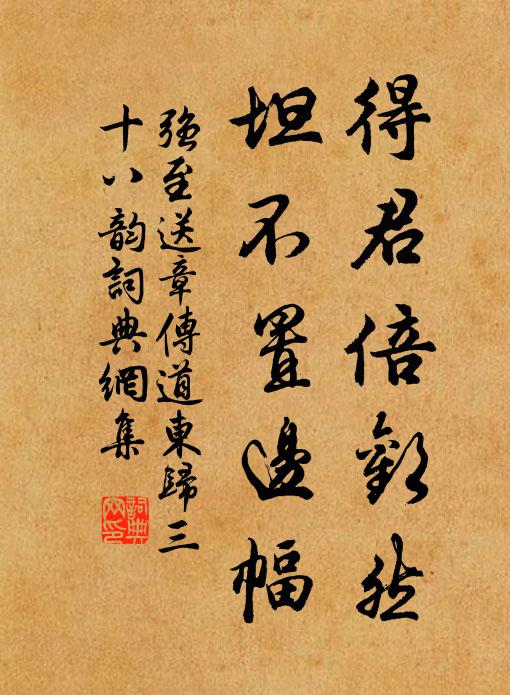 得君倍歡然
坦不置邊幅
強至送章傳道東歸三
十八韵詞典網集
詞典
网印